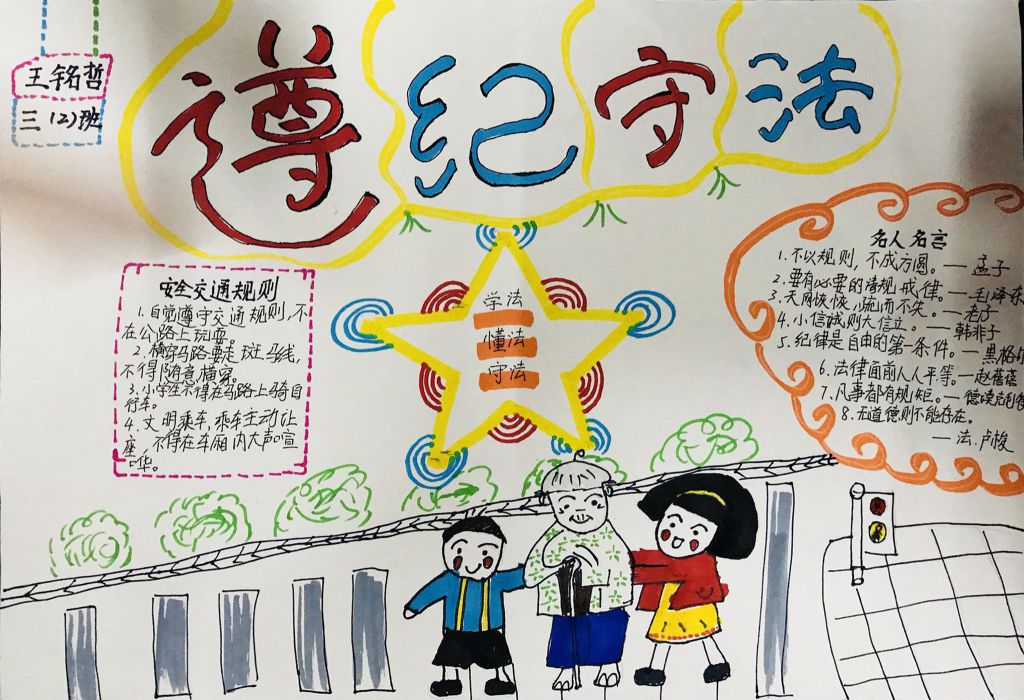 王铭哲
三(2)班
遵纪守法
安全交通规则
1.自觉遵守交通规则,不
在公路上玩耍。
2.横穿马路要走斑马线,
不得随意横穿。
3.小学生不得在马路上骑自
行车。
4.文明乘车,乘车主动让
座,不得在车厢内大声喧
哗。
学法
懂法
守法
名人名言
1.不以规则,不成方圆。—孟子
2.要有必要的清规戒律。—毛泽东
3.天网恢恢,疏而不失。—老子
4.小信诚则大信立。—韩非子
5.纪律是自由的第一条件。—黑格
6.法律面前人人平等。—赵蓓蓓
7.凡事都有规矩。—德
8.无道德则不能存在。
—法.卢梭